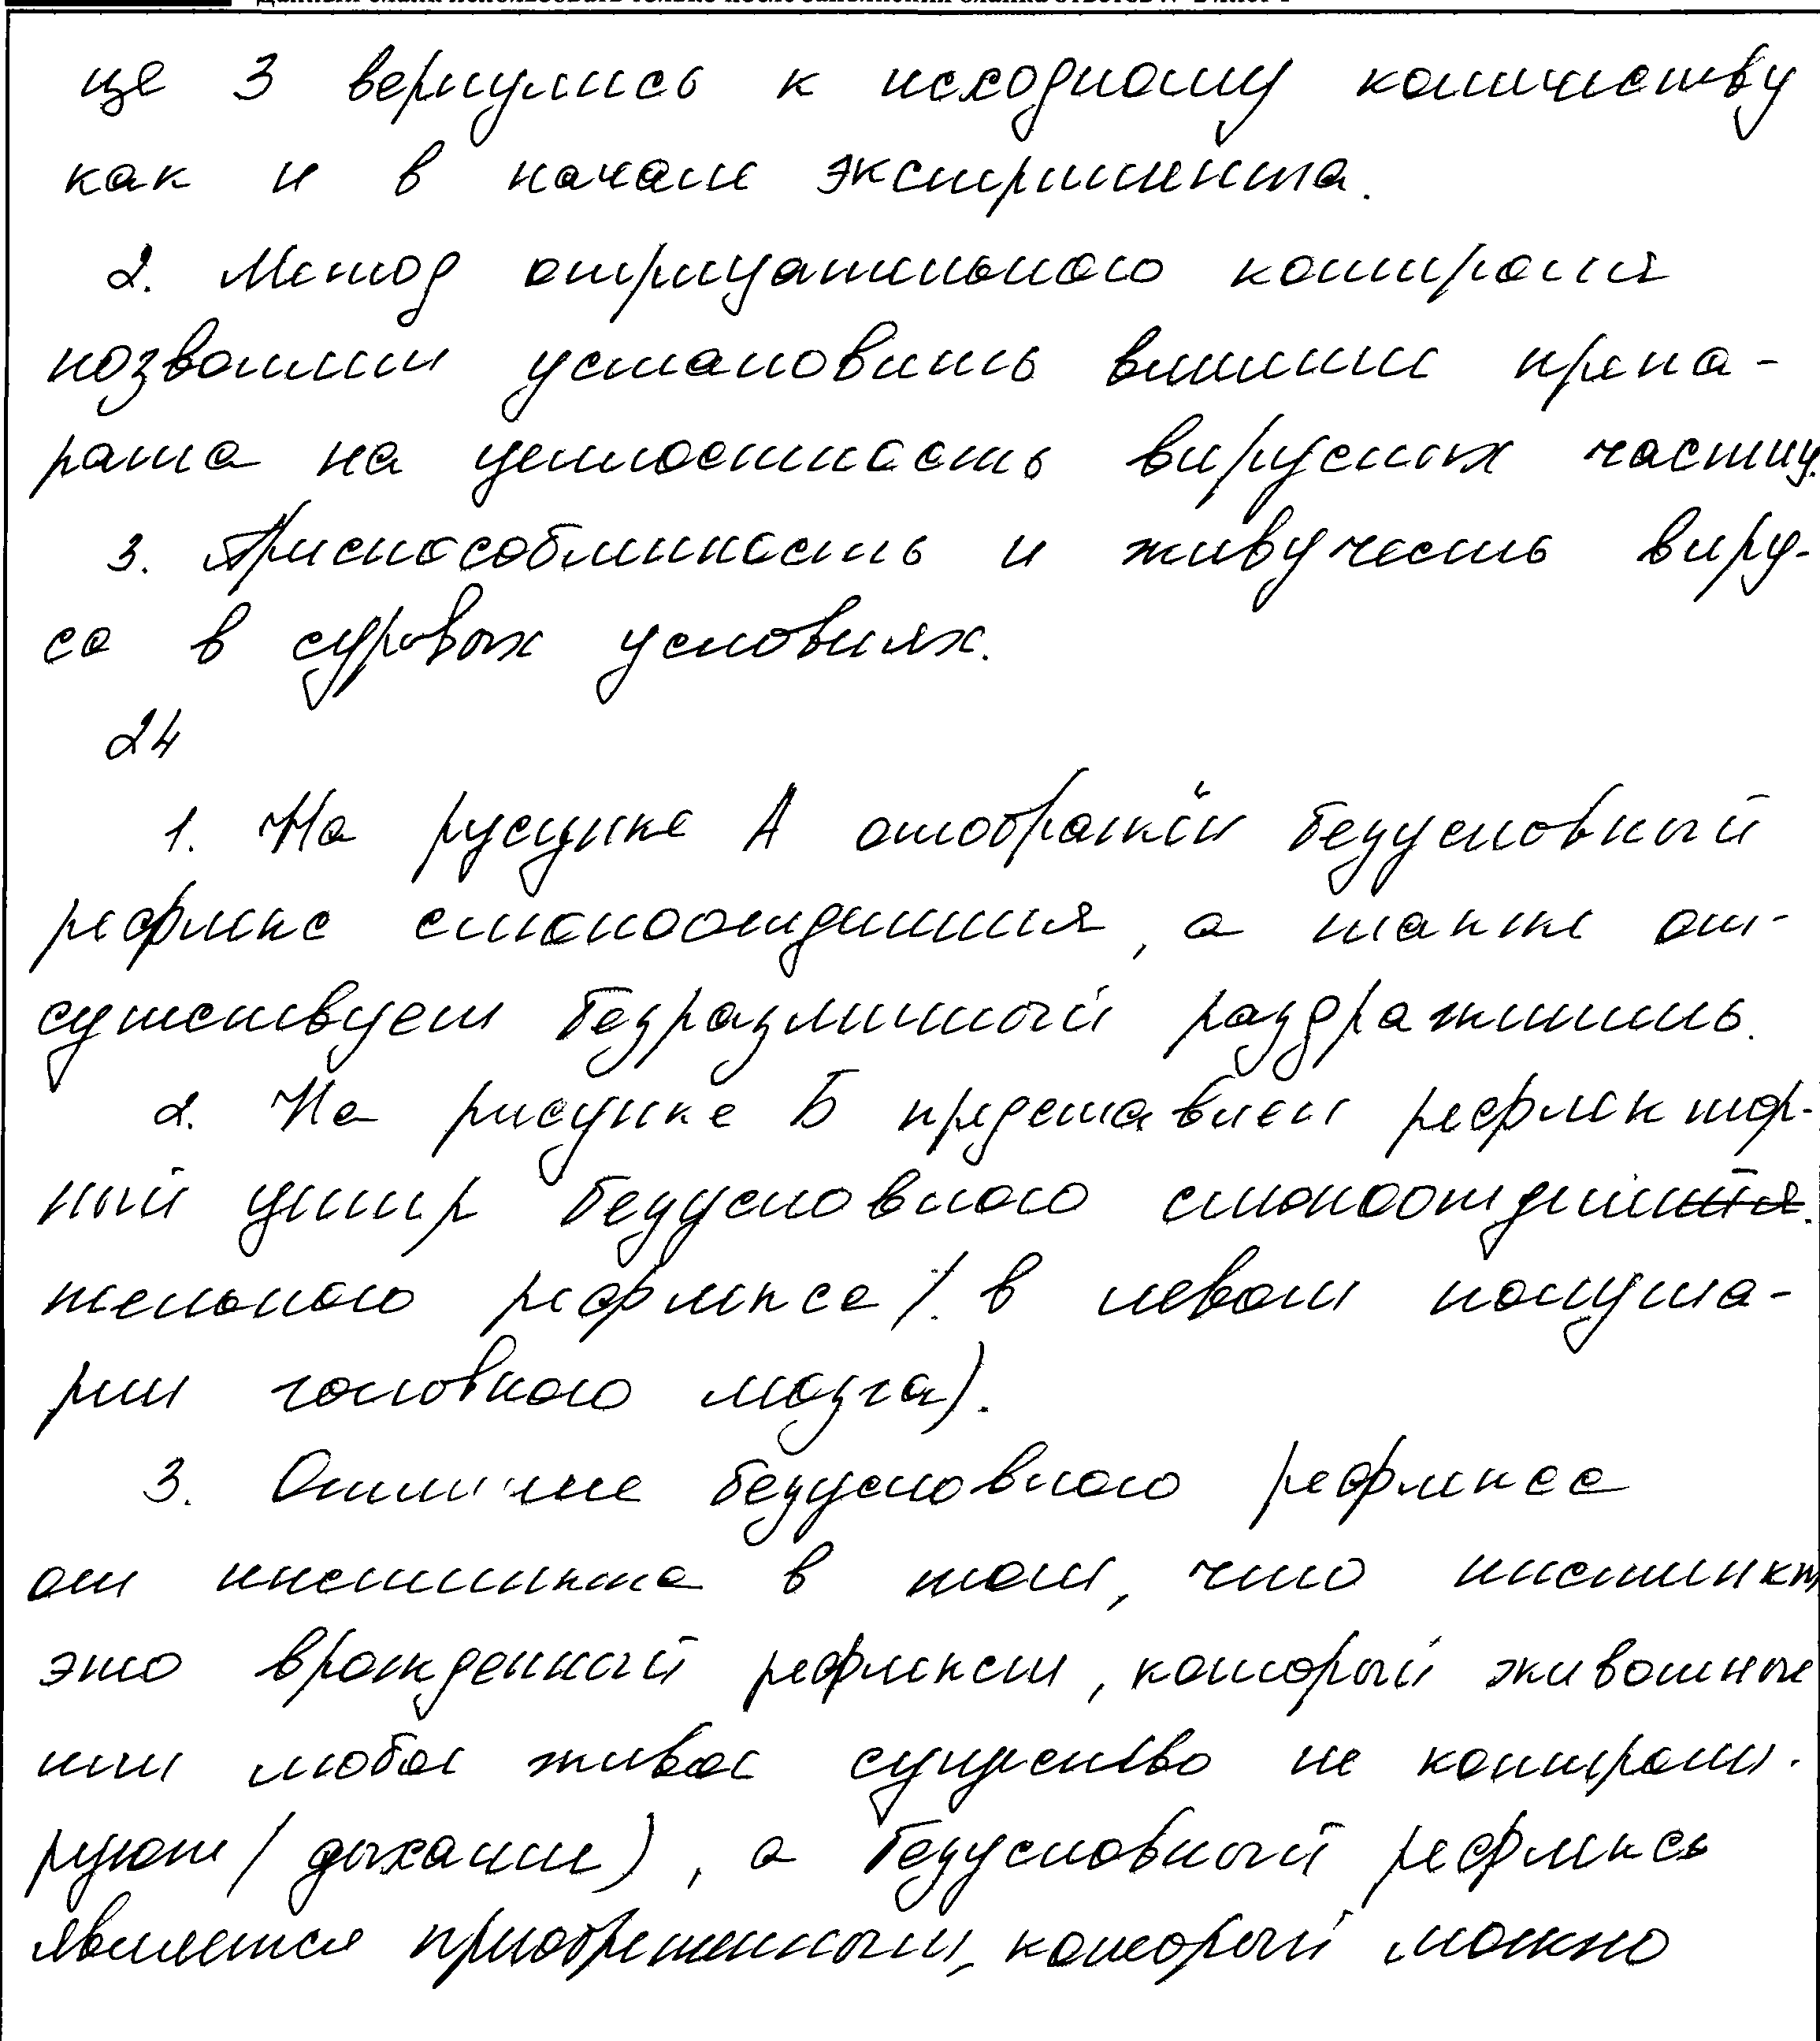 це 3 вернулись к исходному количеству
как и в начале эксперимента.
2. Метод отрицательного контроля
позволил установить влияние препа-
рата на целостность вирусных частиц.
3. Приспособленность и живучесть виру-
са в суровых условиях.
24
1. На русунке А отображён безусловный
рефлекс слюноотделения, а также от-
сутствует безразличный раздражитель.
2. На рисунке Б представлен рефлектор-
ный центр безусловного слюноотдели
тельного рефлекса (в левом полуша-
рии головного мозга).
3. Отличие безусловного рефлекса
от инстинкта в том, что инстинкт
это врожденный рефлекс, который животные
или любое живое существо не контроли-
руют (дыхание), а безусловный рефлекс
является приобретенным, который можно